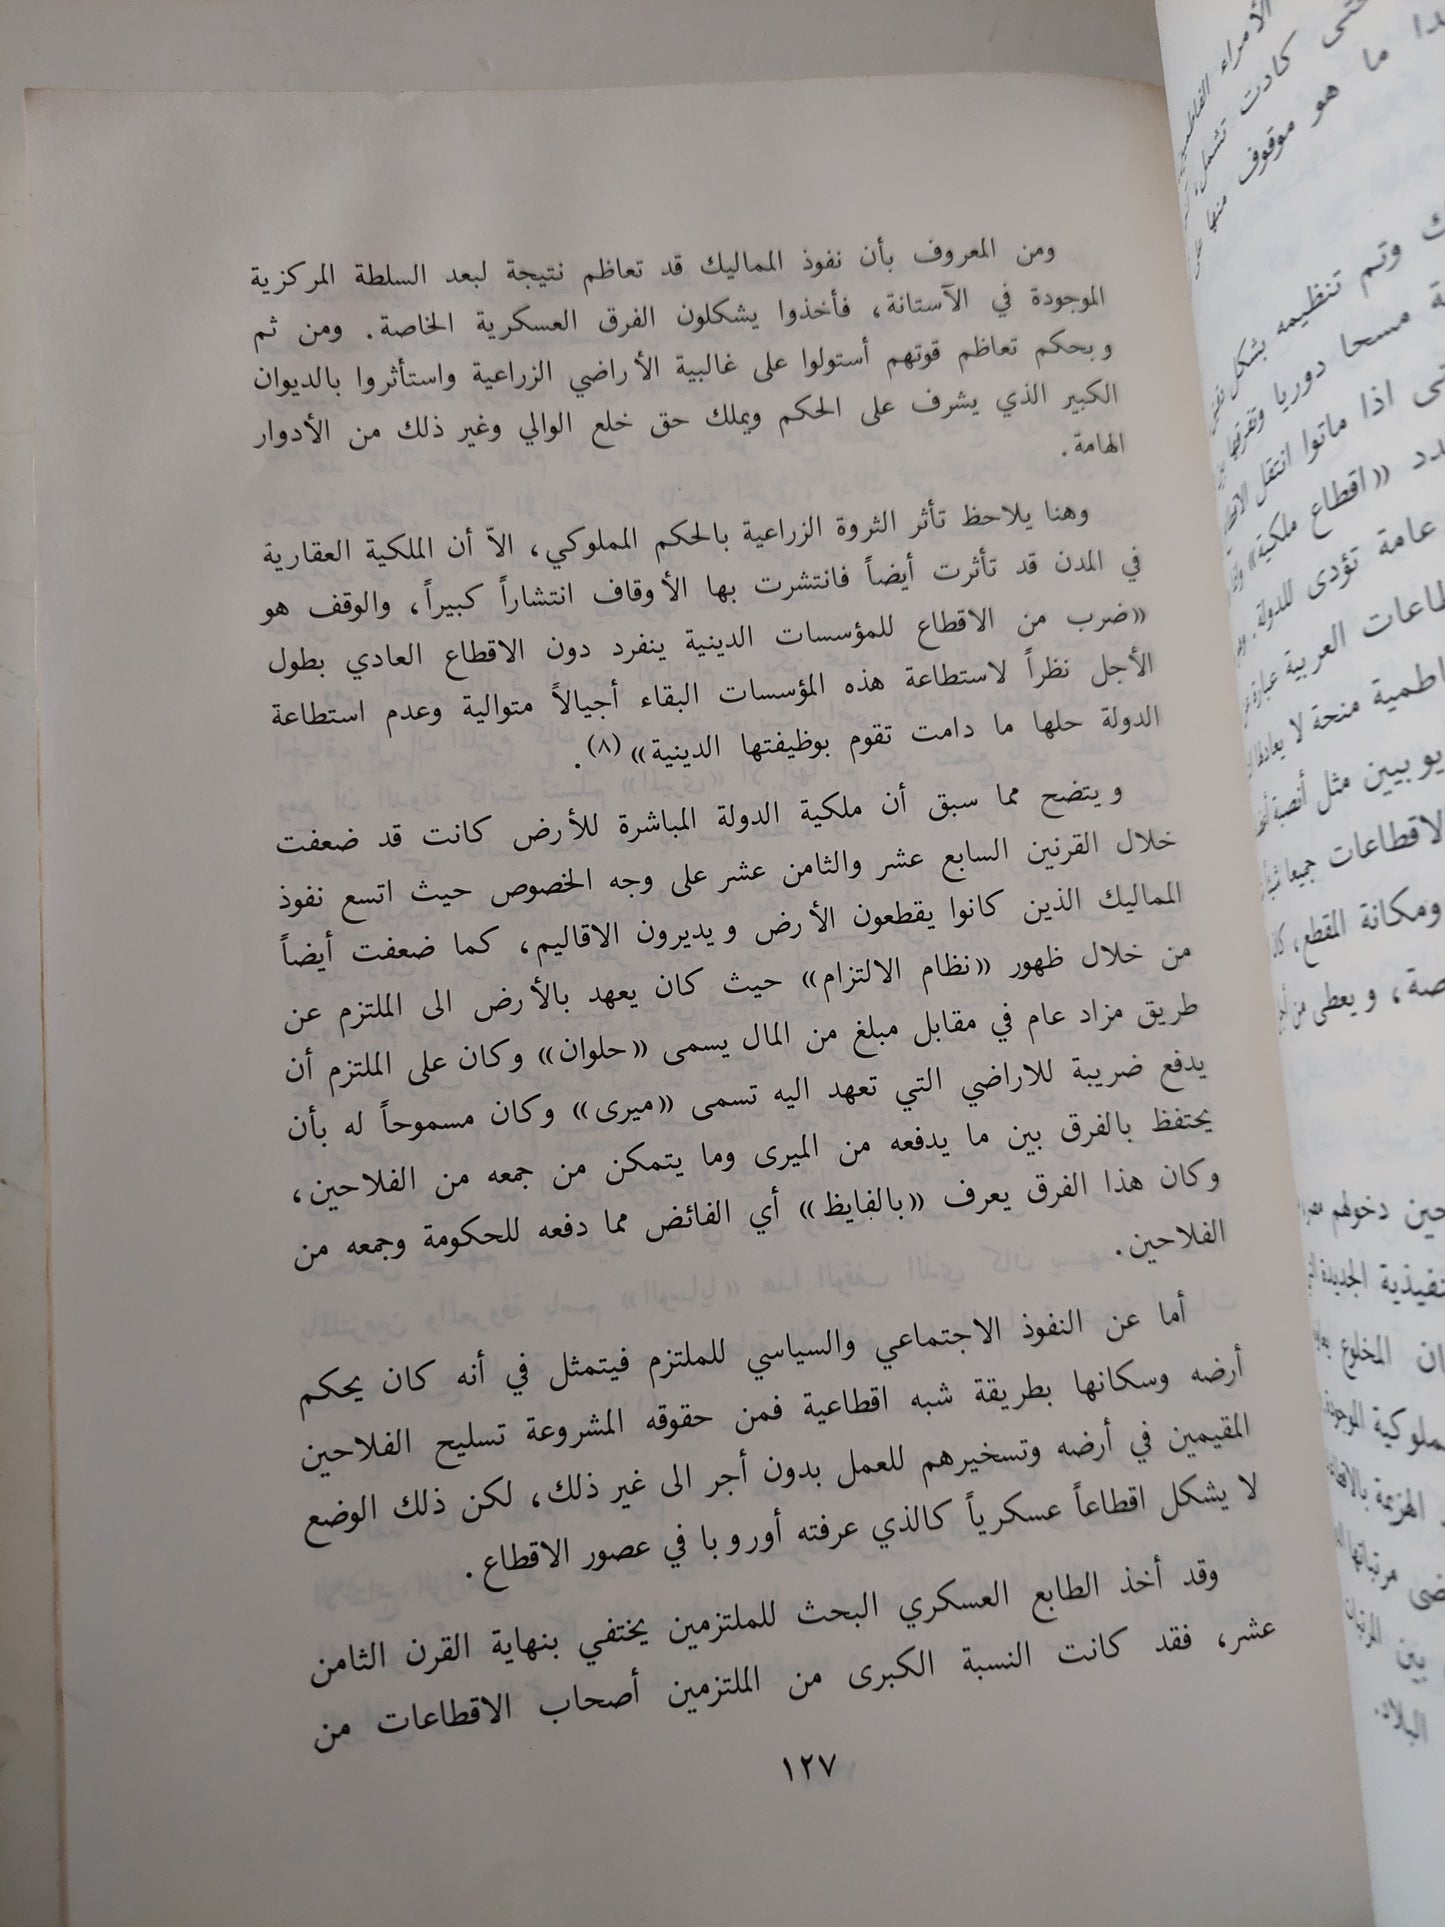 ومن المعروف بأن نفوذ المماليك قد تعاظم نتيجة لبعد السلطة المركزية
الموجودة في الآستانة، فأخذوا يشكلون الفرق العسكرية الخاصة. ومن ثم
وبحكم تعاظم قوتهم أستولوا على غالبية الأراضي الزراعية واستأثروا بالديوان
الكبير الذي يشرف على الحكم ويملك حق خلع الوالي وغير ذلك من الأدوار
الهامة.
وهنا يلاحظ تأثر الثروة الزراعية بالحكم المملوكي، الاّ أن الملكية العقارية
في المدن قد تأثرت أيضاً فانتشرت بها الأوقاف انتشاراً كبيراً، والوقف هو
«ضرب من الاقطاع للمؤسسات الدينية ينفرد دون الاقطاع العادي بطول
الأجل نظراً لاستطاعة هذه المؤسسات البقاء أجيالاً متوالية وعدم استطاعة
الدولة حلها ما دامت تقوم بوظيفتها الدينية» (٨).
ويتضح مما سبق أن ملكية الدولة المباشرة للأرض كانت قد ضعفت
خلال القرنين السابع عشر والثامن عشر على وجه الخصوص حيث اتسع نفوذ
المماليك الذين كانوا يقطعون الأرض ويديرون الاقاليم، كما ضعفت أيضاً
من خلال ظهور «نظام الالتزام» حيث كان يعهد بالأرض الى الملتزم عن
طريق مزاد عام في مقابل مبلغ من المال يسمى «حلوان» وكان على الملتزم أن
يدفع ضريبة للاراضي التي تعهد اليه تسمى «ميرى» وكان مسموحاً له بأن
يحتفظ بالفرق بين ما يدفعه من الميرى وما يتمكن من جمعه من الفلاحين،
وكان هذا الفرق يعرف «بالفايظ» أي الفائض مما دفعه للحكومة وجمعه من
الفلاحين.
أما عن النفوذ الاجتماعي والسياسي للملتزم فيتمثل في أنه كان يحكم
أرضه وسكانها بطريقة شبه اقطاعية فمن حقوقه المشروعة تسليح الفلاحين
المقيمين في أرضه وتسخيرهم للعمل بدون أجر الى غير ذلك، لكن ذلك الوضع
لا يشكل اقطاعاً عسكرياً كالذي عرفته أوروبا في عصور الاقطاع.
وقد أخذ الطابع العسكري البحث للملتزمين يختفي بنهاية القرن الثامن
عشر، فقد كانت النسبة الكبرى من الملتزمين أصحاب الاقطاعات من
١٢٧
حتى كادت تشمل
ما هو موقوف منها
وتم تنظيمه بشكل
مسحا دوريا
اذا ماتوا انتقل
«اقطاع ملكية»
عامة تؤدى للدولة
العربية
منحة لا
مثل
الاقطاعات جميعا
ومكانة المقطع،
ويعطى من
دخولهم
الجديدة
المخلوع
بين
البلاد.